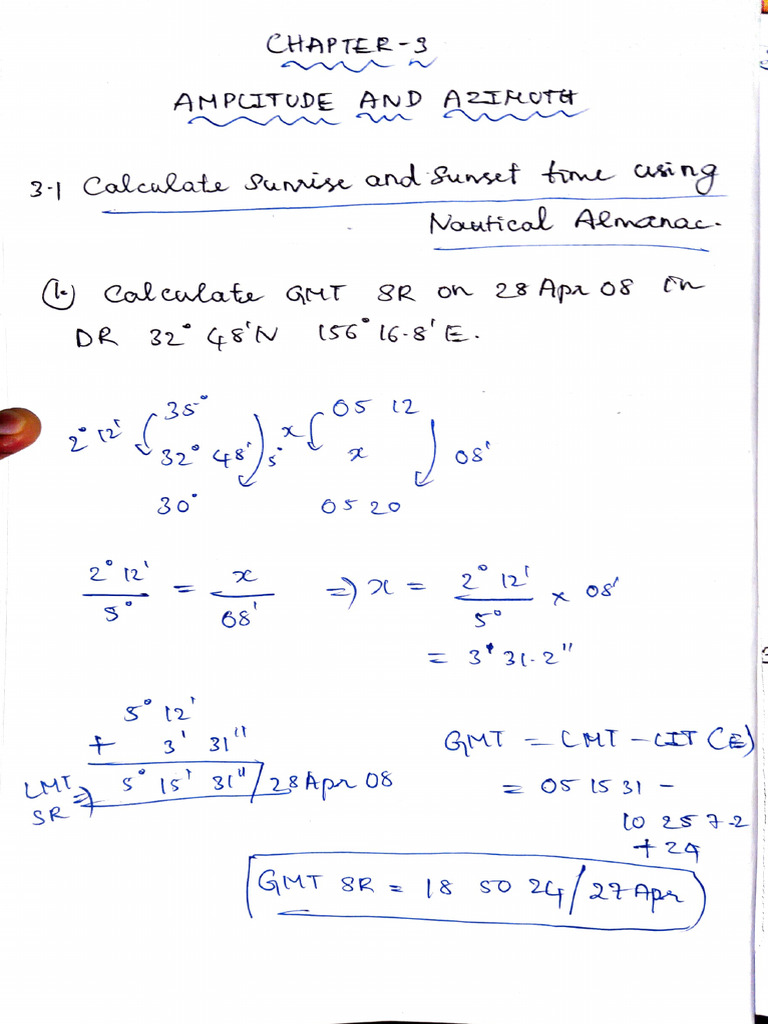 CHAPTER-3
AMPLITUDE AND AZIMUTH
3.1 Calculate Sunrise and Sunset time using
Nautical Almanac.
1. Calculate GMT SR on 28 Apr 08 in
DR 32° 48'N 156° 16.8'E.
35° 05 12
2° 12' 32° 48' 5° x x 08'
30° 05 20
2° 12' / 5° = x / 08' => x = 2° 12' / 5° x 08'
= 3' 31.2"
5° 12'
+ 3' 31" GMT = LMT - LIT (E)
LMT SR => 5° 15' 31" / 28 Apr 08 = 05 15 31 -
10 25 7.2
+ 24
GMT SR = 18 50 24 / 27 Apr